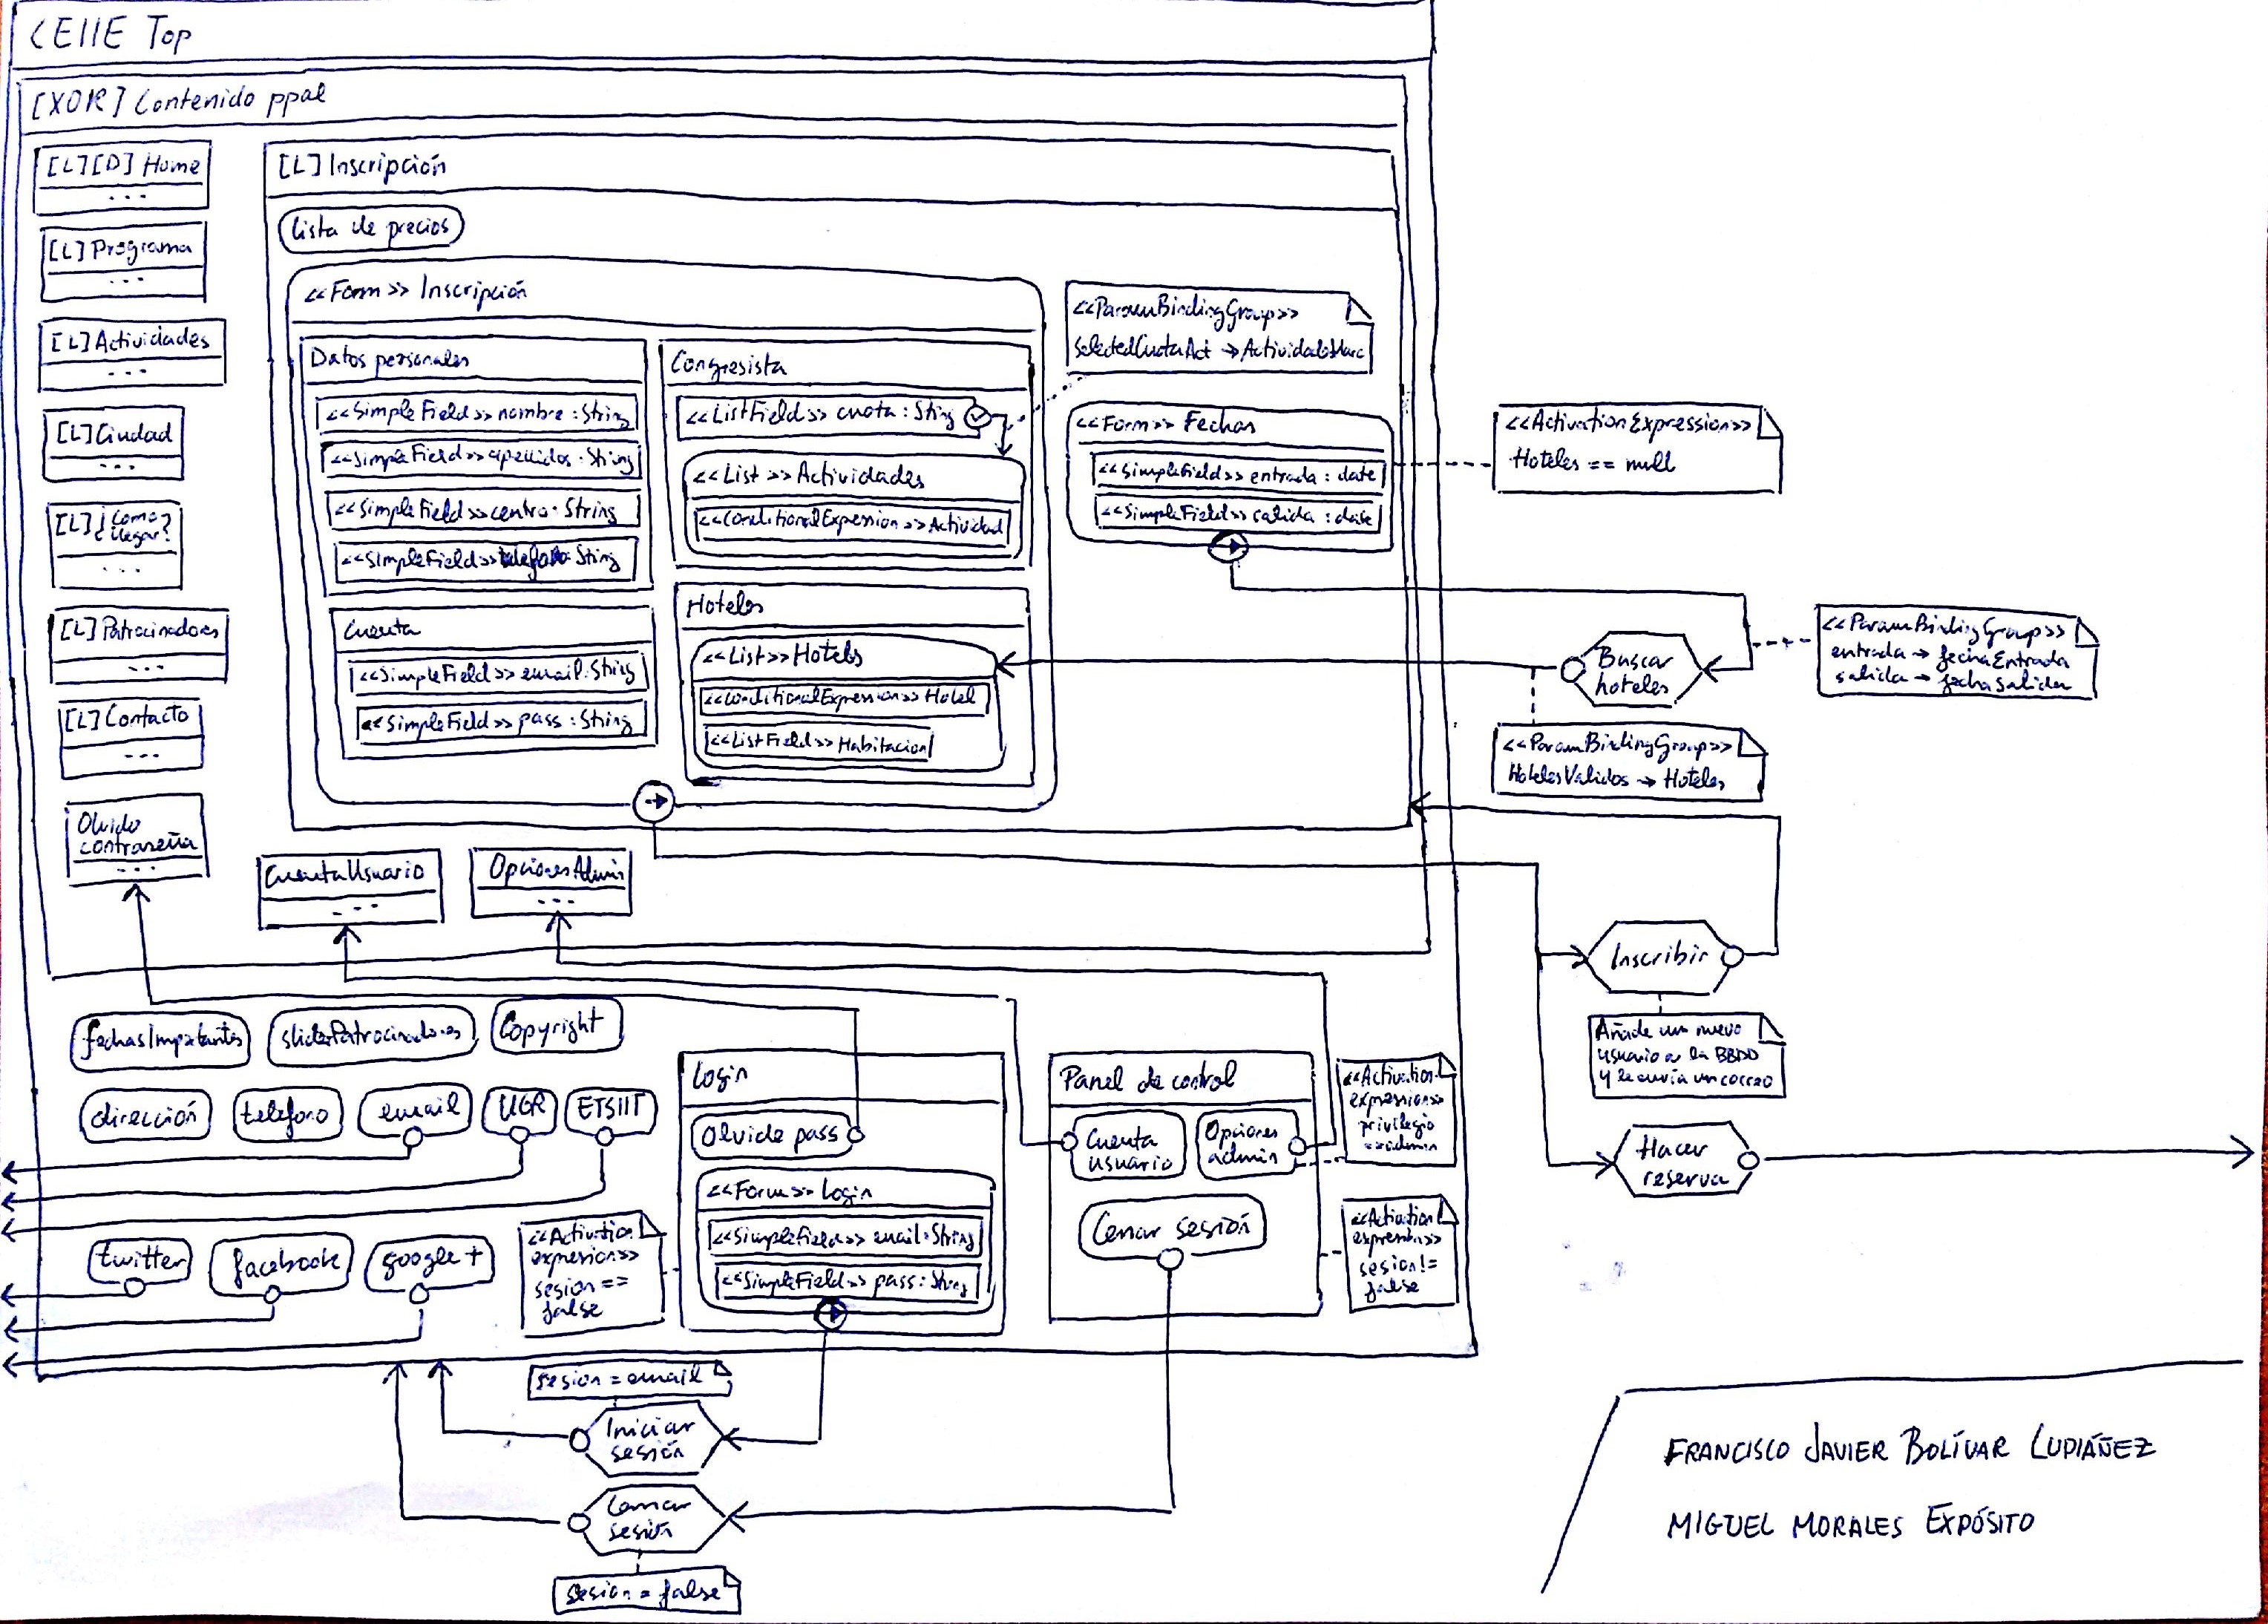 CEIIE Top
[XOR] Contenido ppal
[L][D] Home
...
[L] Programa
...
[L] Actividades
...
[L] Ciudad
...
[L] ¿Como llegar?
...
[L] Patrocinadores
...
[L] Contacto
...
Olvido
contraseña
...
[L] Inscripción
Lista de precios
<<Form>> Inscripción
Datos personales
<<SimpleField>> nombre : String
<<SimpleField>> apellidos : String
<<SimpleField>> centro : String
<<SimpleField>> telefono : String
Cuenta
<<SimpleField>> email : String
<<SimpleField>> pass : String
Congresista
<<ListField>> cuota : String
<<List>> Actividades
<<ConditionalExpression>> Actividad
Hoteles
<<List>> Hotels
<<ConditionalExpression>> Hotel
<<ListField>> Habitacion
<<ParamBindingGroup>>
selectedCuotaAct →
<<Form>> Fechas
<<SimpleField>> entrada : date
<<SimpleField>> salida : date
<<ActivationExpression>>
Hoteles == null
Buscar
hoteles
<<ParamBindingGroup>>
entrada → fechaEntrada
salida → fechaSalida
<<ParamBindingGroup>>
HotelesValidos → Hoteles
CuentaUsuario
...
OpcionesAdmin
...
Inscribir
Añade un nuevo
usuario a la BBDD
y le envía un correo
Hacer
reserva
fechasImportantes
sliderPatrocinadores
Copyright
dirección
telefono
email
UGR
ETSIIT
twitter
facebook
google+
<<Activation
expression>>
sesion ==
false
Login
Olvide pass
<<Form>> Login
<<SimpleField>> email : String
<<SimpleField>> pass : String
Panel de control
Cuenta
usuario
Opciones
admin
Cerrar sesión
<<Activation
expression>>
privilegio
==admin
<<Activation
expression>>
sesion !=
false
sesion = email
Iniciar
sesión
Cerrar
sesión
sesion = false
FRANCISCO JAVIER BOLÍVAR LUPIÁÑEZ
MIGUEL MORALES EXPÓSITO